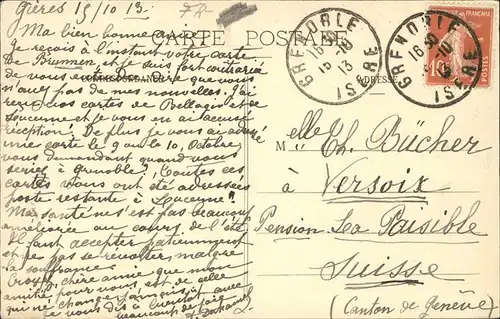 Gières 15/10 13.
Ma bien bonne amie
CARTE POSTALE
Je reçois à l'instant votre carte
de Brunnen et je suis fort contrariée
CORRESPONDANCE
ADRESSE
de vous que
n'avez pas de mes nouvelles. J'ai
reçu vos cartes de Bellagio et
Lucerne je vous en ai accusé
réception. De plus je vous ai adressé
une carte le 9 ou le 10, Octobre
vous demandant quand vous
seriez à Grenoble? Toutes ces
cartes vous ont été adressées
poste restante à Lucerne".
Ma santé ne s'est pas beaucoup
améliorée au cours de l'été
Il faut accepter patiemment
et ne pas se révolter malgré
la souffrance.
Croyez, chère amie que mon
amitié pour vous est de celle
qui ne change jamais,
Je vous dis à bientôt avec
beaucoup de joie
GRENOBLE
16 30
15 10
13
ISERE
GRENOBLE
16 30
10
ISERE
10
Melle Th. Bücher
à Versoix
Pension La Paisible
Suisse
(Canton de Genève)